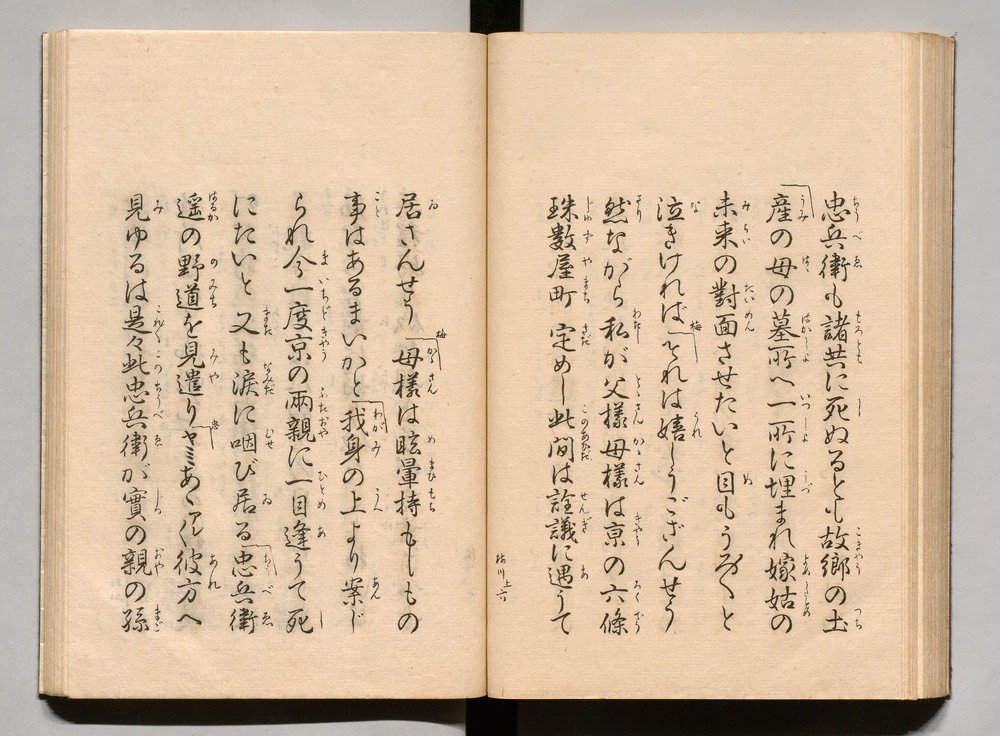 忠兵衛も諸共に死ぬるとも故郷の土
産の母の墓所へ一所に埋まれ嫁姑の
未来の對面させたいと目もうろ〳〵と
泣きければ梅それは嬉しうござんせう
然ながら私が父様母様は京の六條
珠数屋町定めし此間は詮議に遇うて
居さんせう梅母様は眩暈持もしもの
事はあるまいかと我身の上より案じ
られ今一度京の兩親に一目逢うて死
にたいと又も涙に咽び居る忠兵衛
遥の野道を見遣り忠ヤミあゝアレ〳〵彼方へ
見ゆるは是々此忠兵衛が實の親の孫